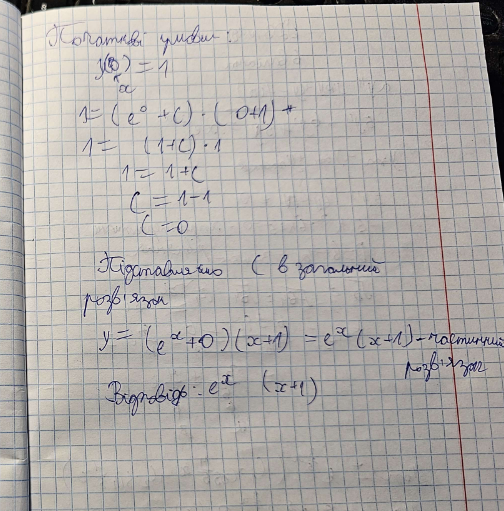 Початкові умови:
y(0) = 1
x
1 = (e⁰ + C) · (0+1)
1 = (1+C) · 1
1 = 1+C
C = 1-1
C = 0
Підставляємо C в загальний
розв'язок
y = (eˣ+0)(x+1) = eˣ(x+1) - частинний
розв'язок
Відповідь: eˣ (x+1)